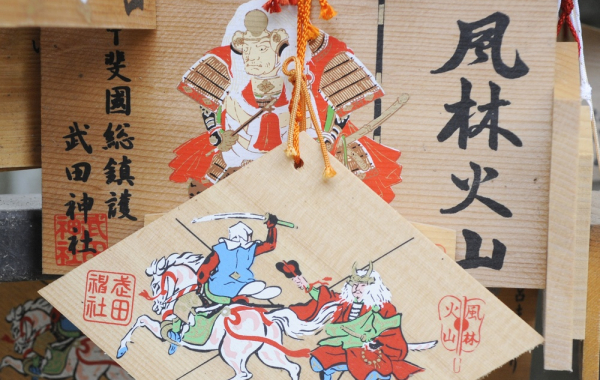 風林火山
甲斐國総鎮護
武田神社
武田神社
武田神社
風林火山